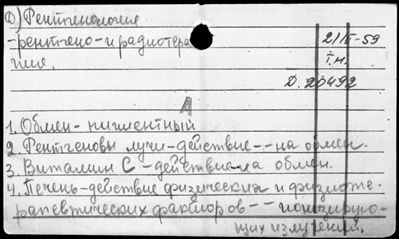 Ф) Рентгенология
-рентгено- и радиотера
пия.
2/III-59
т.н.
Д. 20492
А
1. Обмен - пигментный
2. Рентгеновы лучи - действие - - на обмен.
3. Витамин С - действие на обмен.
4. Печень - действие физических и физиоте-
рапевтических факторов - - ионизирую-
щих излучений.